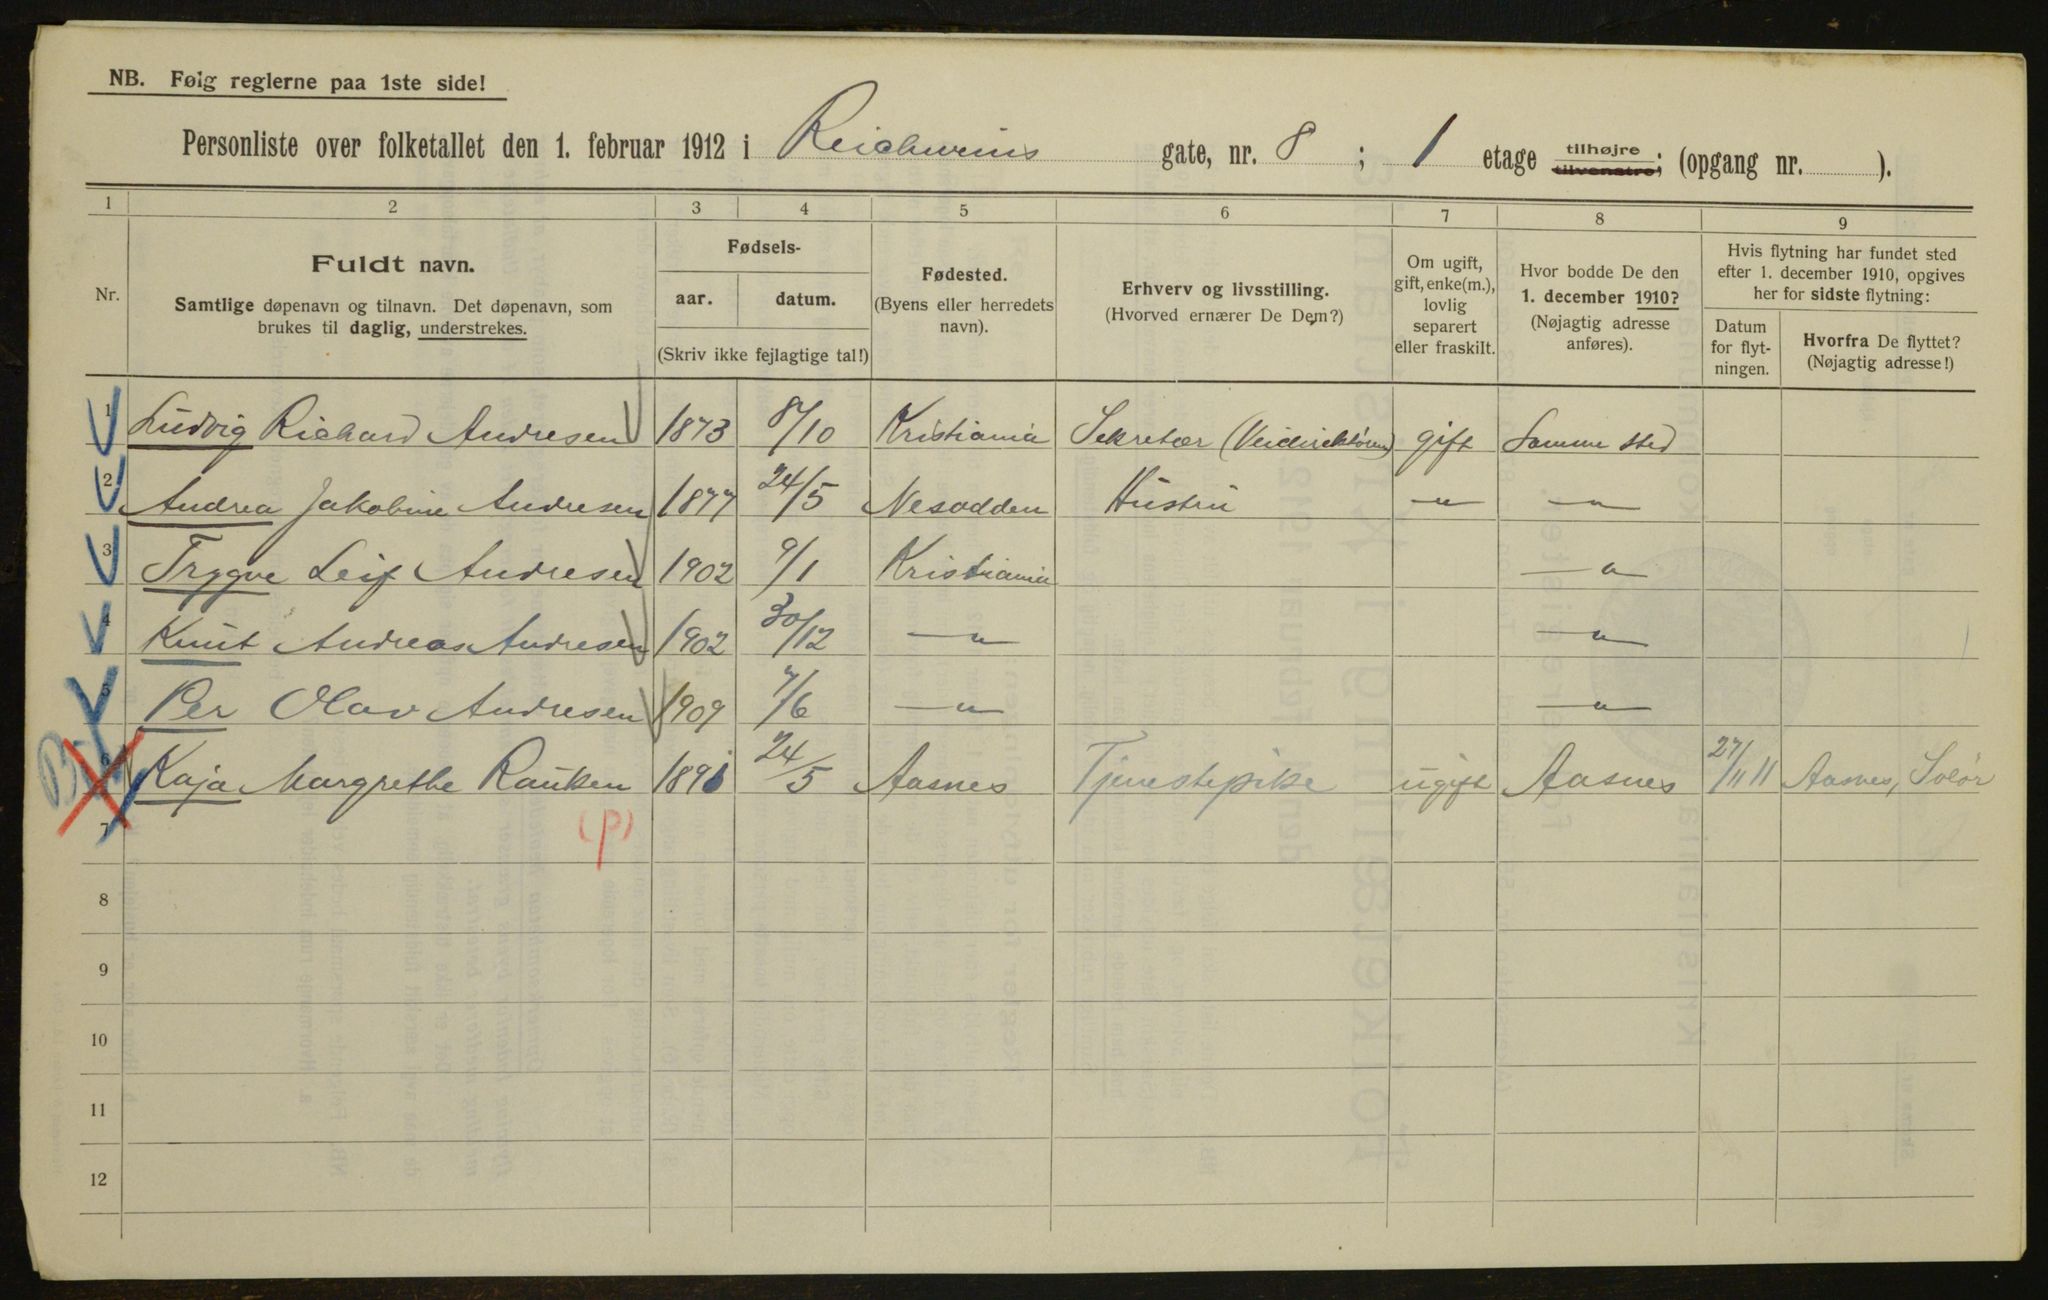 NB. Følg reglerne paa 1ste side!
Personliste over folketallet den 1. februar 1912 i Reichweins gate, nr. 8 ; 1 etage tilhøjre tilvenstre; (opgang nr. ).
1 2 3 4 5 6 7 8 9
Nr.
Fuldt navn.
Samtlige døpenavn og tilnavn. Det døpenavn, som
brukes til daglig, understrekes.
Fødsels-
aar. datum.
(Skriv ikke fejlagtige tal!)
Fødested.
(Byens eller herredets
navn).
Erhverv og livsstilling.
(Hvorved ernærer De Dem?)
Om ugift,
gift, enke(m.),
lovlig
separert
eller fraskilt.
Hvor bodde De den
1. december 1910?
(Nøjagtig adresse
anføres).
Hvis flytning har fundet sted
efter 1. december 1910, opgives
her for sidste flytning:
Datum
for flyt-
ningen.
Hvorfra De flyttet?
(Nøjagtig adresse!)
1 Ludvig Richard Andresen 1873 8/10 Kristiania Sekretær (Veidirektøren) gift Samme sted
2 Andrea Jakobine Andresen 1877 24/5 Nesodden Hustru — " — — " —
3 Trygve Leif Andresen 1902 9/1 Kristiania — " —
4 Knut Andreas Andresen 1902 30/12 — " — — " —
5 Per Olav Andresen 1909 7/6 — " — — " —
6 Kaja Margrethe Rauken 1891 24/5 Aasnes Tjenestepike ugift Aasnes 27/11 11 Aasnes, Solør
7 (p)
8
9
10
11
12